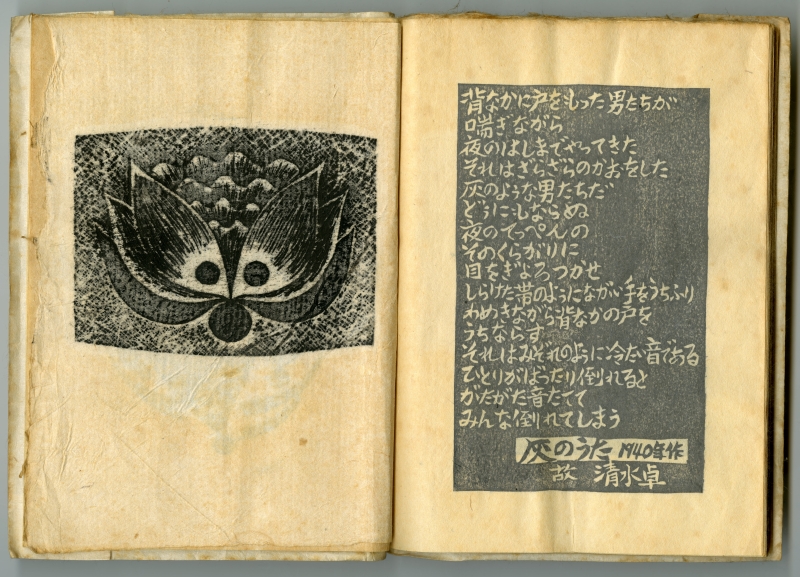 背なかに戸をもった男たちが
喘ぎながら
夜のはしまでやってきた
それはざらざらのかおをした
灰のような男たちだ
どうにもならぬ
夜のてっぺんの
そのくらがりに
目をぎょろつかせ
しらけた帯のようにながい手をうちふり
わめきながら背なかの戸を
うちならす
それはみぞれのように冷たい音である
ひとりがばったり倒れると
がたがた音たてて
みんな倒れてしまう
灰のうた 1940年作
故 清水卓